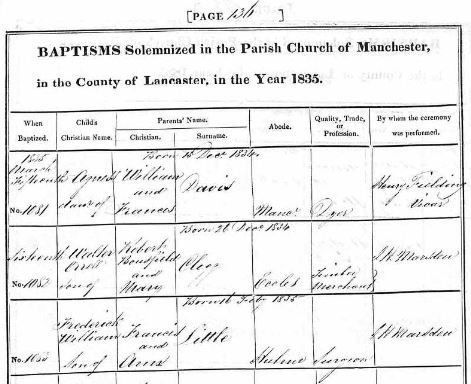 [PAGE 136 ]
BAPTISMS Solemnized in the Parish Church of Manchester,
in the County of Lancaster, in the Year 1835.
When Baptized.
Child's Christian Name.
Parents' Name.
Christian.
Surname.
Abode.
Quality, Trade, or Profession.
By whom the ceremony was performed.
1835
March
Fifteenth
No. 1081
Born 15 Decr 1834.
Agnes
daur of
William
and
Frances
Davis
Manr
Dyer
Henry Fielding
Sixteenth
No. 1082
Born 26 Decr 1834
Walter
son of
Robert
and
Mary
Clegg
Eccles
Timber
Merchant
J. K. Marsden
Born
Feby 1835
Frederick
William
Son of
Francis
and
Ann
Little
Hulme
Surgeon
J. K. Marsden